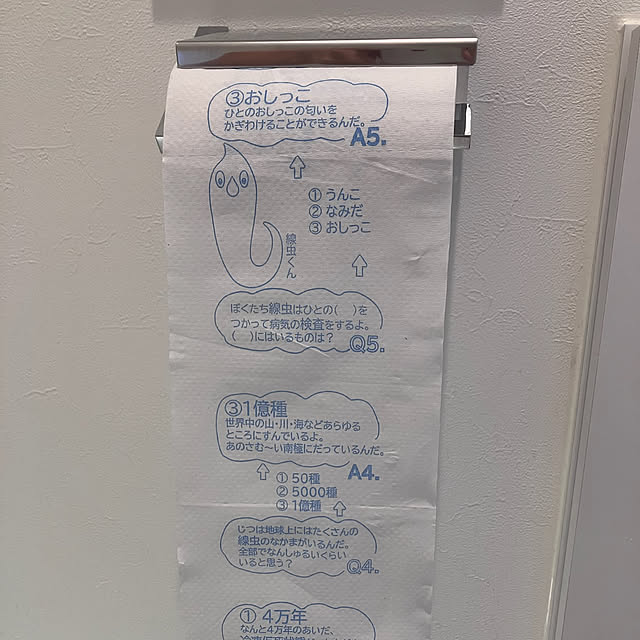 ③おしっこ
ひとのおしっこの匂いを
かぎわけることができるんだ。
A5.
① うんこ
② なみだ
③ おしっこ
線虫くん
ぼくたち線虫はひとの( )を
つかって病気の検査をするよ。
( )にはいるものは?
Q5.
③1億種
世界中の山・川・海などあらゆる
ところにすんでいるよ。
あのさむ〜い南極にだっているんだ。
A4.
① 50種
② 5000種
③ 1億種
じつは地球上にはたくさんの
線虫のなかまがいるんだ。
全部でなんしゅるいくらい
いると思う?
Q4.
① 4万年
なんと4万年のあいだ、